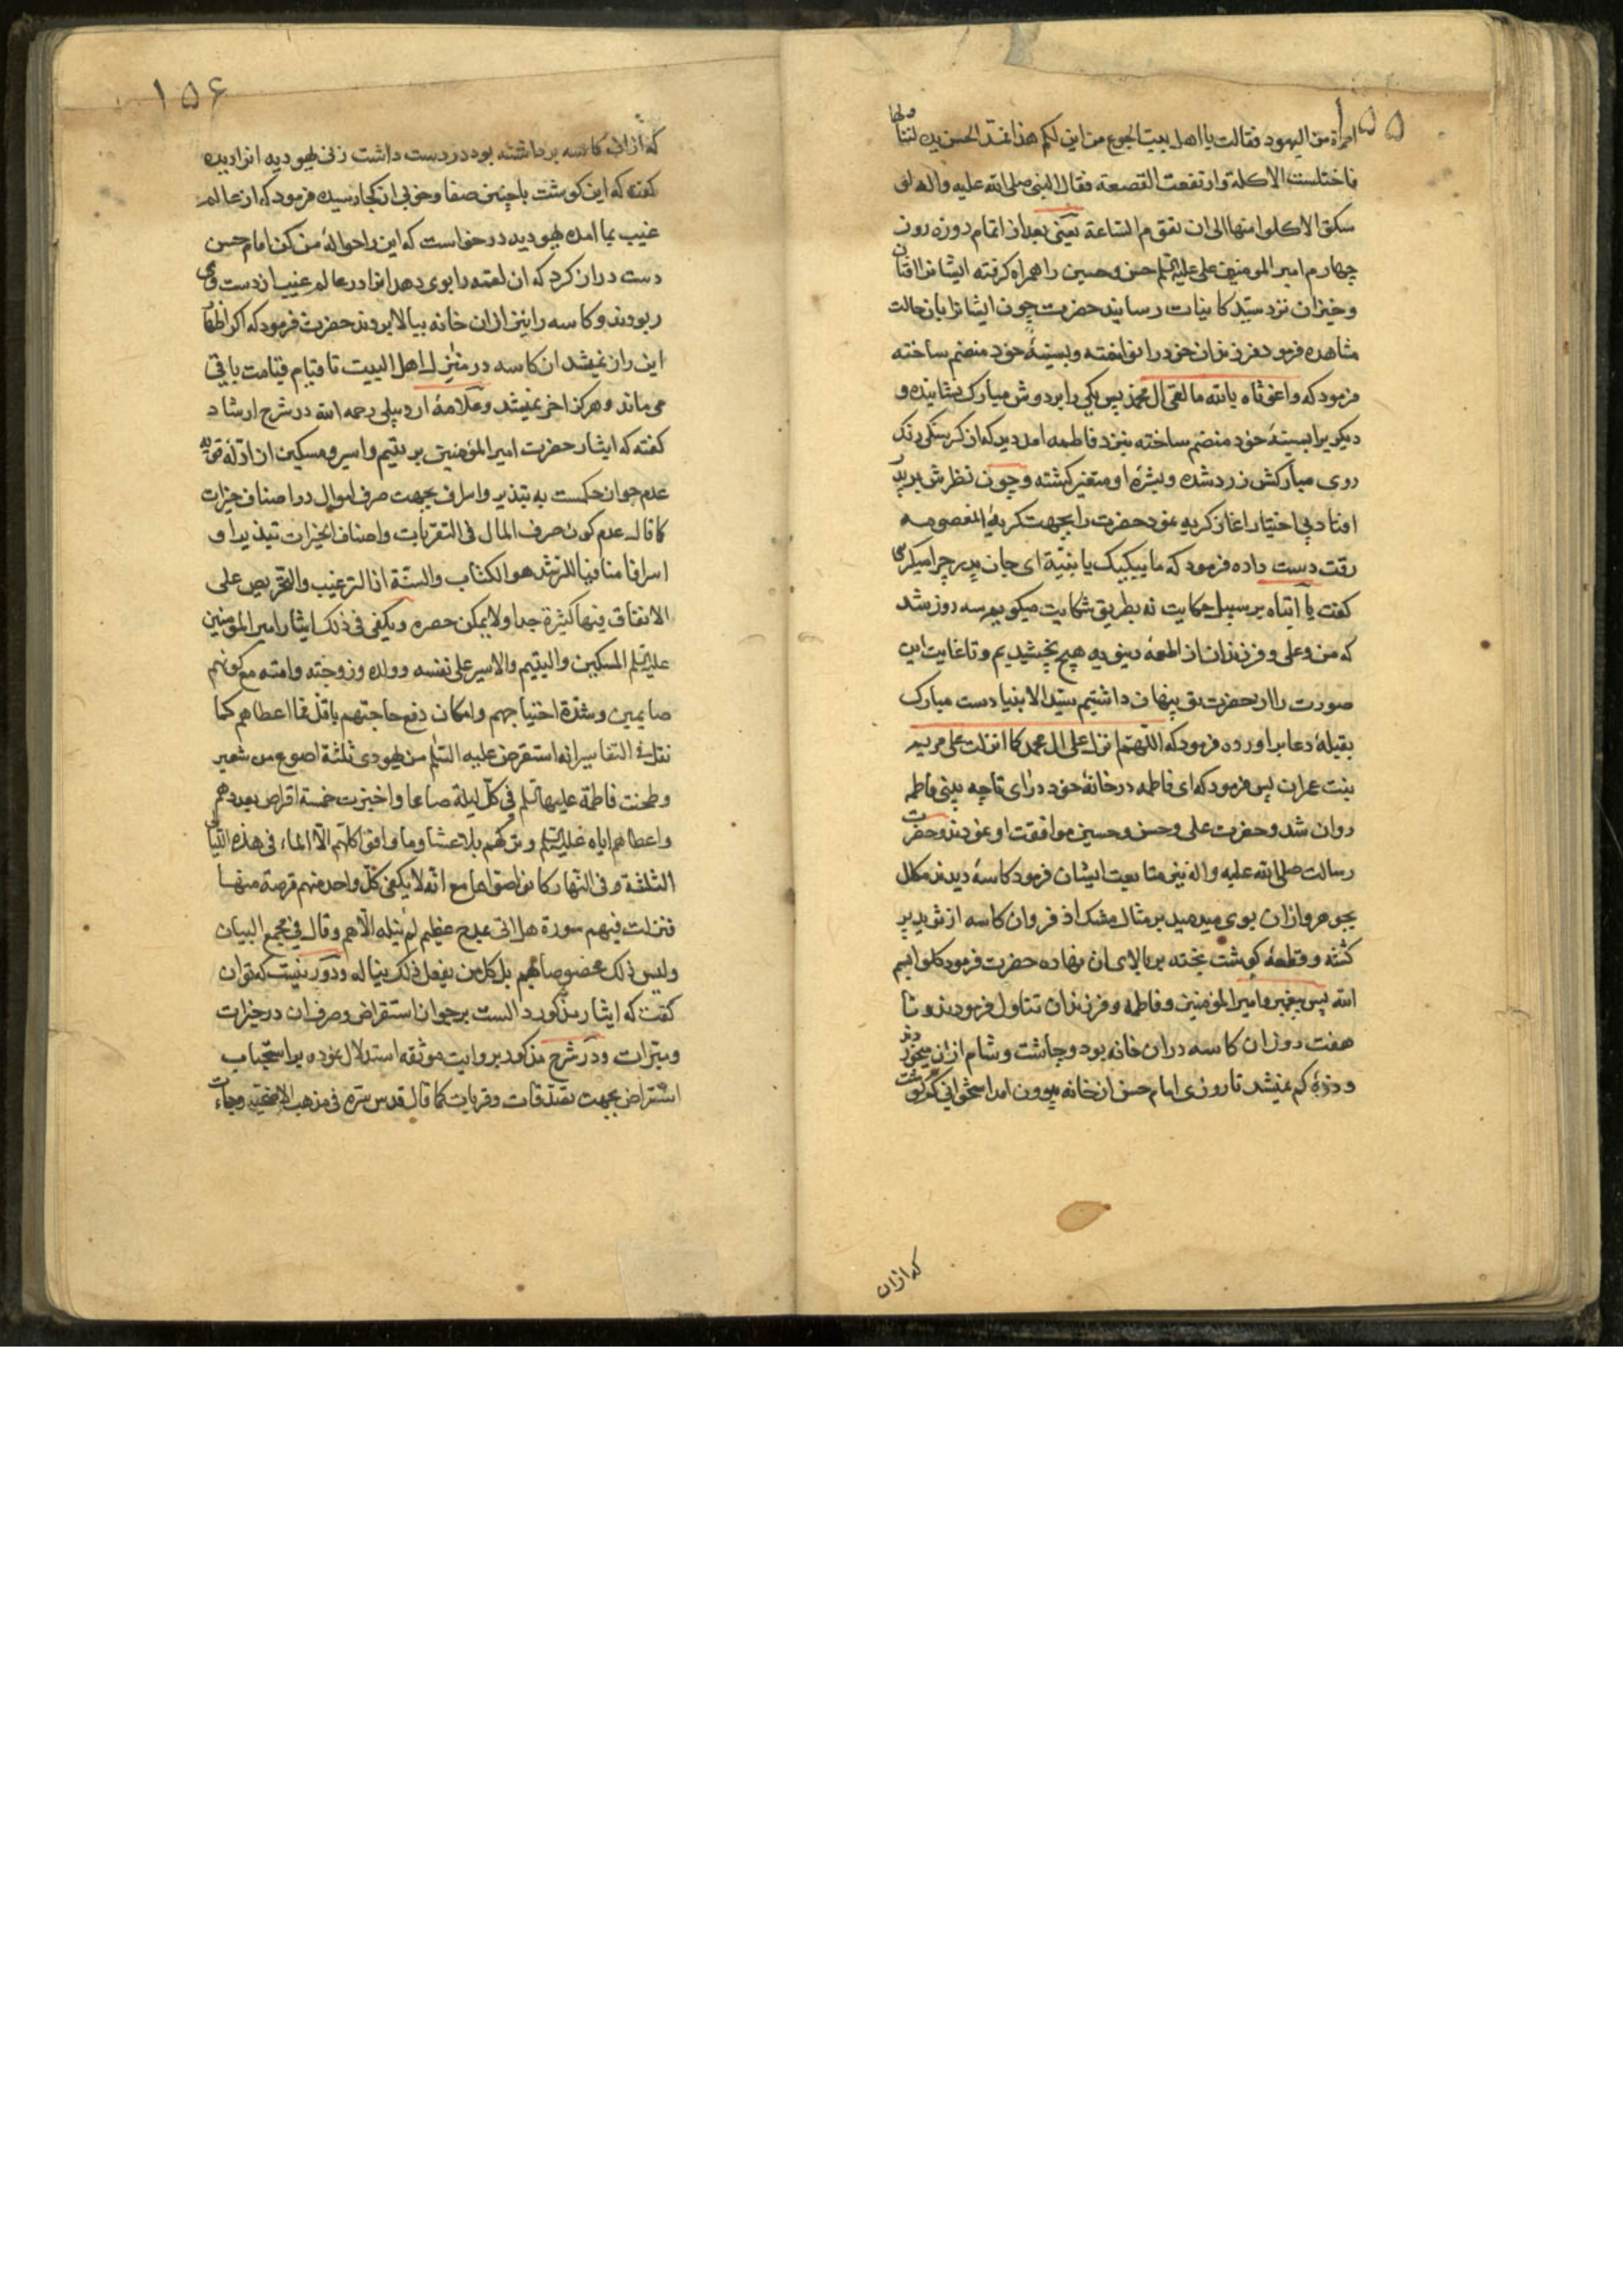 ۱۵۵
امراة من الیهود فقالت یا اهل بیت الجوع من این لکم هذا فمد الحسن یده لیناولها
فاختلست الاکلة وارتفعت القصعة فقال النبی صلی الله علیه واله لو
سکتوا لاکلوا منها الی ان تقوم الساعة یعنی بعد از اتمام روزه روز
چهارم امیر المومنین علی علیه السلم حسن وحسین را همراه کرفته ایشانرا افتان
وخیزان نزد سید کاینات رسانید حضرت چون ایشانرا بان حالت
مشاهده فرمود فرزندان خودرا نواخته وبسینهٔ خود منضم ساخته
فرمود که واغوثاه یا الله ما لقی ال محمد پس یکی را بر دوش مبارک نشانیده و
دیکریرا بسینهٔ خود منضم ساخته بنزد فاطمه امد دید که از کرسنکی رنک
روی مبارکش زرد شده وبشرهٔ او متغیر کشته وچون نظرش بر پدر
افتاد بی اختیار اغاز کریه نمود حضرت را بجهت کریهٔ المعصومه
رقت دست داده فرمود که ما یبکیک یا بنیة ای جان پدر چرا میکریی
کفت یا ابتاه بر سبیل حکایت نه بطریق شکایت میکویم سه روز شد
که من وعلی و فرزندان از اطعمهٔ دنیویه هیچ نچشیدیم و تا غایت این
صورت را از حضرت تو پنهان داشتیم سید الانبیا دست مبارک
بقبلهٔ دعا براورده فرمود که اللهم انزل علی ال محمد کما انزلت علی مریم
بنت عمران پس فرمود که ای فاطمه درخانهٔ خود درای تا چه بینی فاطمه
روان شد وحضرت علی وحسن وحسین موافقت او نمودند وحضرت
رسالت صلی الله علیه واله نیز متابعت ایشان فرمود کاسهٔ دیدند مکلل
بجوهر وازان بوی میدمید بر مثال مشک اذفر وان کاسه از ثرید پر
کشته و قطعهٔ کوشت پخته بر بالای ان نهاده حضرت فرمود کلوا بسم
الله پس پیغمبر وامیر المؤمنین و فاطمه و فرزندان تناول فرمودند و تا
هفت روز ان کاسه دران خانه بود و چاشت وشام ازان میخوردند
و ذرهٔ کم نمیشد تا روزی امام حسن از خانه بیرون امد استخوانی کوشت
که ازان
۱۵۶
که ازان کاسه برداشته بود در دست داشت زنی یهودیه انرا دیده
کفت که این کوشت باچنین صفا وخوبی از کجا رسیده فرمود که از عالم
غیب بما امده یهودیه درخواست که این را حوالهٔ من کن امام حسن
دست دراز کرد که ان لقمه را بوی دهد انرا در عالم غیب از دست وی
ربودند وکاسه را نیز ازان خانه ببالا بردند حضرت فرمود که اکر اظهار
این راز نمیشد ان کاسه در منزل اهل البیت تا قیام قیامت باقی
می ماند وهرکز اخر نمیشد وعلامهٔ اردبیلی رحمه الله در شرح ارشاد
کفته که ایثار حضرت امیر المؤمنین بر یتیم واسیر ومسکین از ادلهٔ قویه
عدم جواز حکمست به تبذیر واسراف بجهت صرف اموال در اصناف خیرات
کما قال عدم کون صرف المال فی التقربات واصناف الخیرات تبذیرا و
اسرافا منافیا للرشد هو الکتاب والسنة اذ الترغیب والتحریص علی
الانفاق فیها کثیرة جدا ولا یمکن حصره ویکفی فی ذلک ایثار امیر المؤمنین
علیه السلم المسکین والیتیم والاسیر علی نفسه وولده وزوجته وامته مع کونهم
صایمین وشدة احتیاجهم وامکان دفع حاجتهم باقل مما اعطاهم کما
نقل فی التفاسیر انه استقرض علیه السلم من یهودی ثلثة اصوع من شعیر
وطحنت فاطمة علیها السلم فی کل لیلة صاعا واخبزت خمسة اقراص بعددهم
واعطاهم ایاه علیه السلم وترکهم بلا عشا وما ذاقوا کلهم الا الماء فی هذه اللیالی
الثلثة وفی النهار کانوا صواما مع انه لا یکفی کل واحد منهم قرصة منها
فنزلت فیهم سورة هل اتی بمدح عظیم لم ینله الا هم وقال فی مجمع البیان
ولیس ذلک مخصوصا بهم بل کل من یفعل ذلک یناله ودور نیست که توان
کفت که ایثار مذکور دالست بر جواز استقراض وصرف ان در خیرات
ومبرات ودر شرح مذکور بروایت موثقه استدلال نموده بر استحباب
استقراض بجهت تصدقات وقربات کما قال قدس سره فی مذهب الاضحیه وجاءت